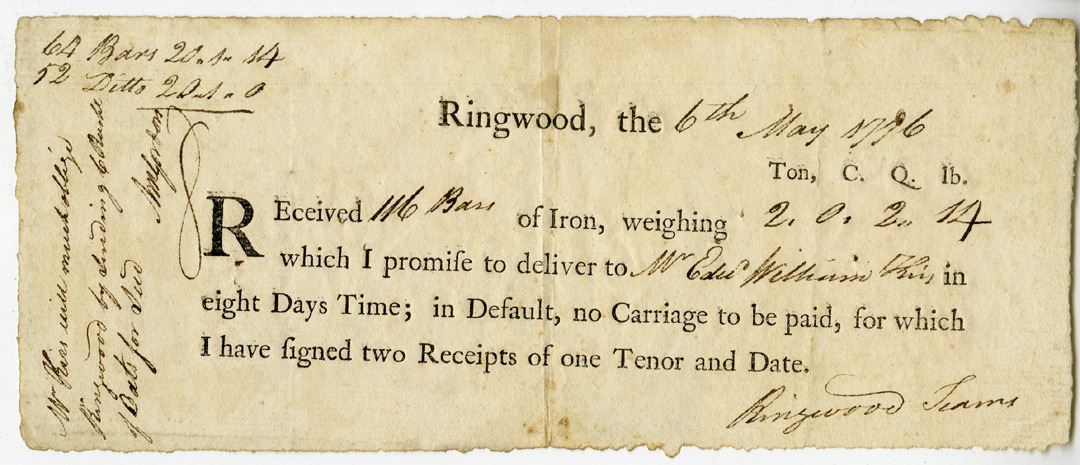 64 Bars 20.1.14
52 Ditto 20.1.0
Ringwood, the 6th May 1796
Ton, C. Q. lb.
REceived 116 Bars of Iron, weighing 2. 0. 2. 14
which I promiſe to deliver to Mr Edwd William Kiers in
eight Days Time; in Default, no Carriage to be paid, for which
I have ſigned two Receipts of one Tenor and Date.
Ringwood Teams
Mr Kiers will much oblige
Ringwood by sending 6 Bushl
of Oats for Seed